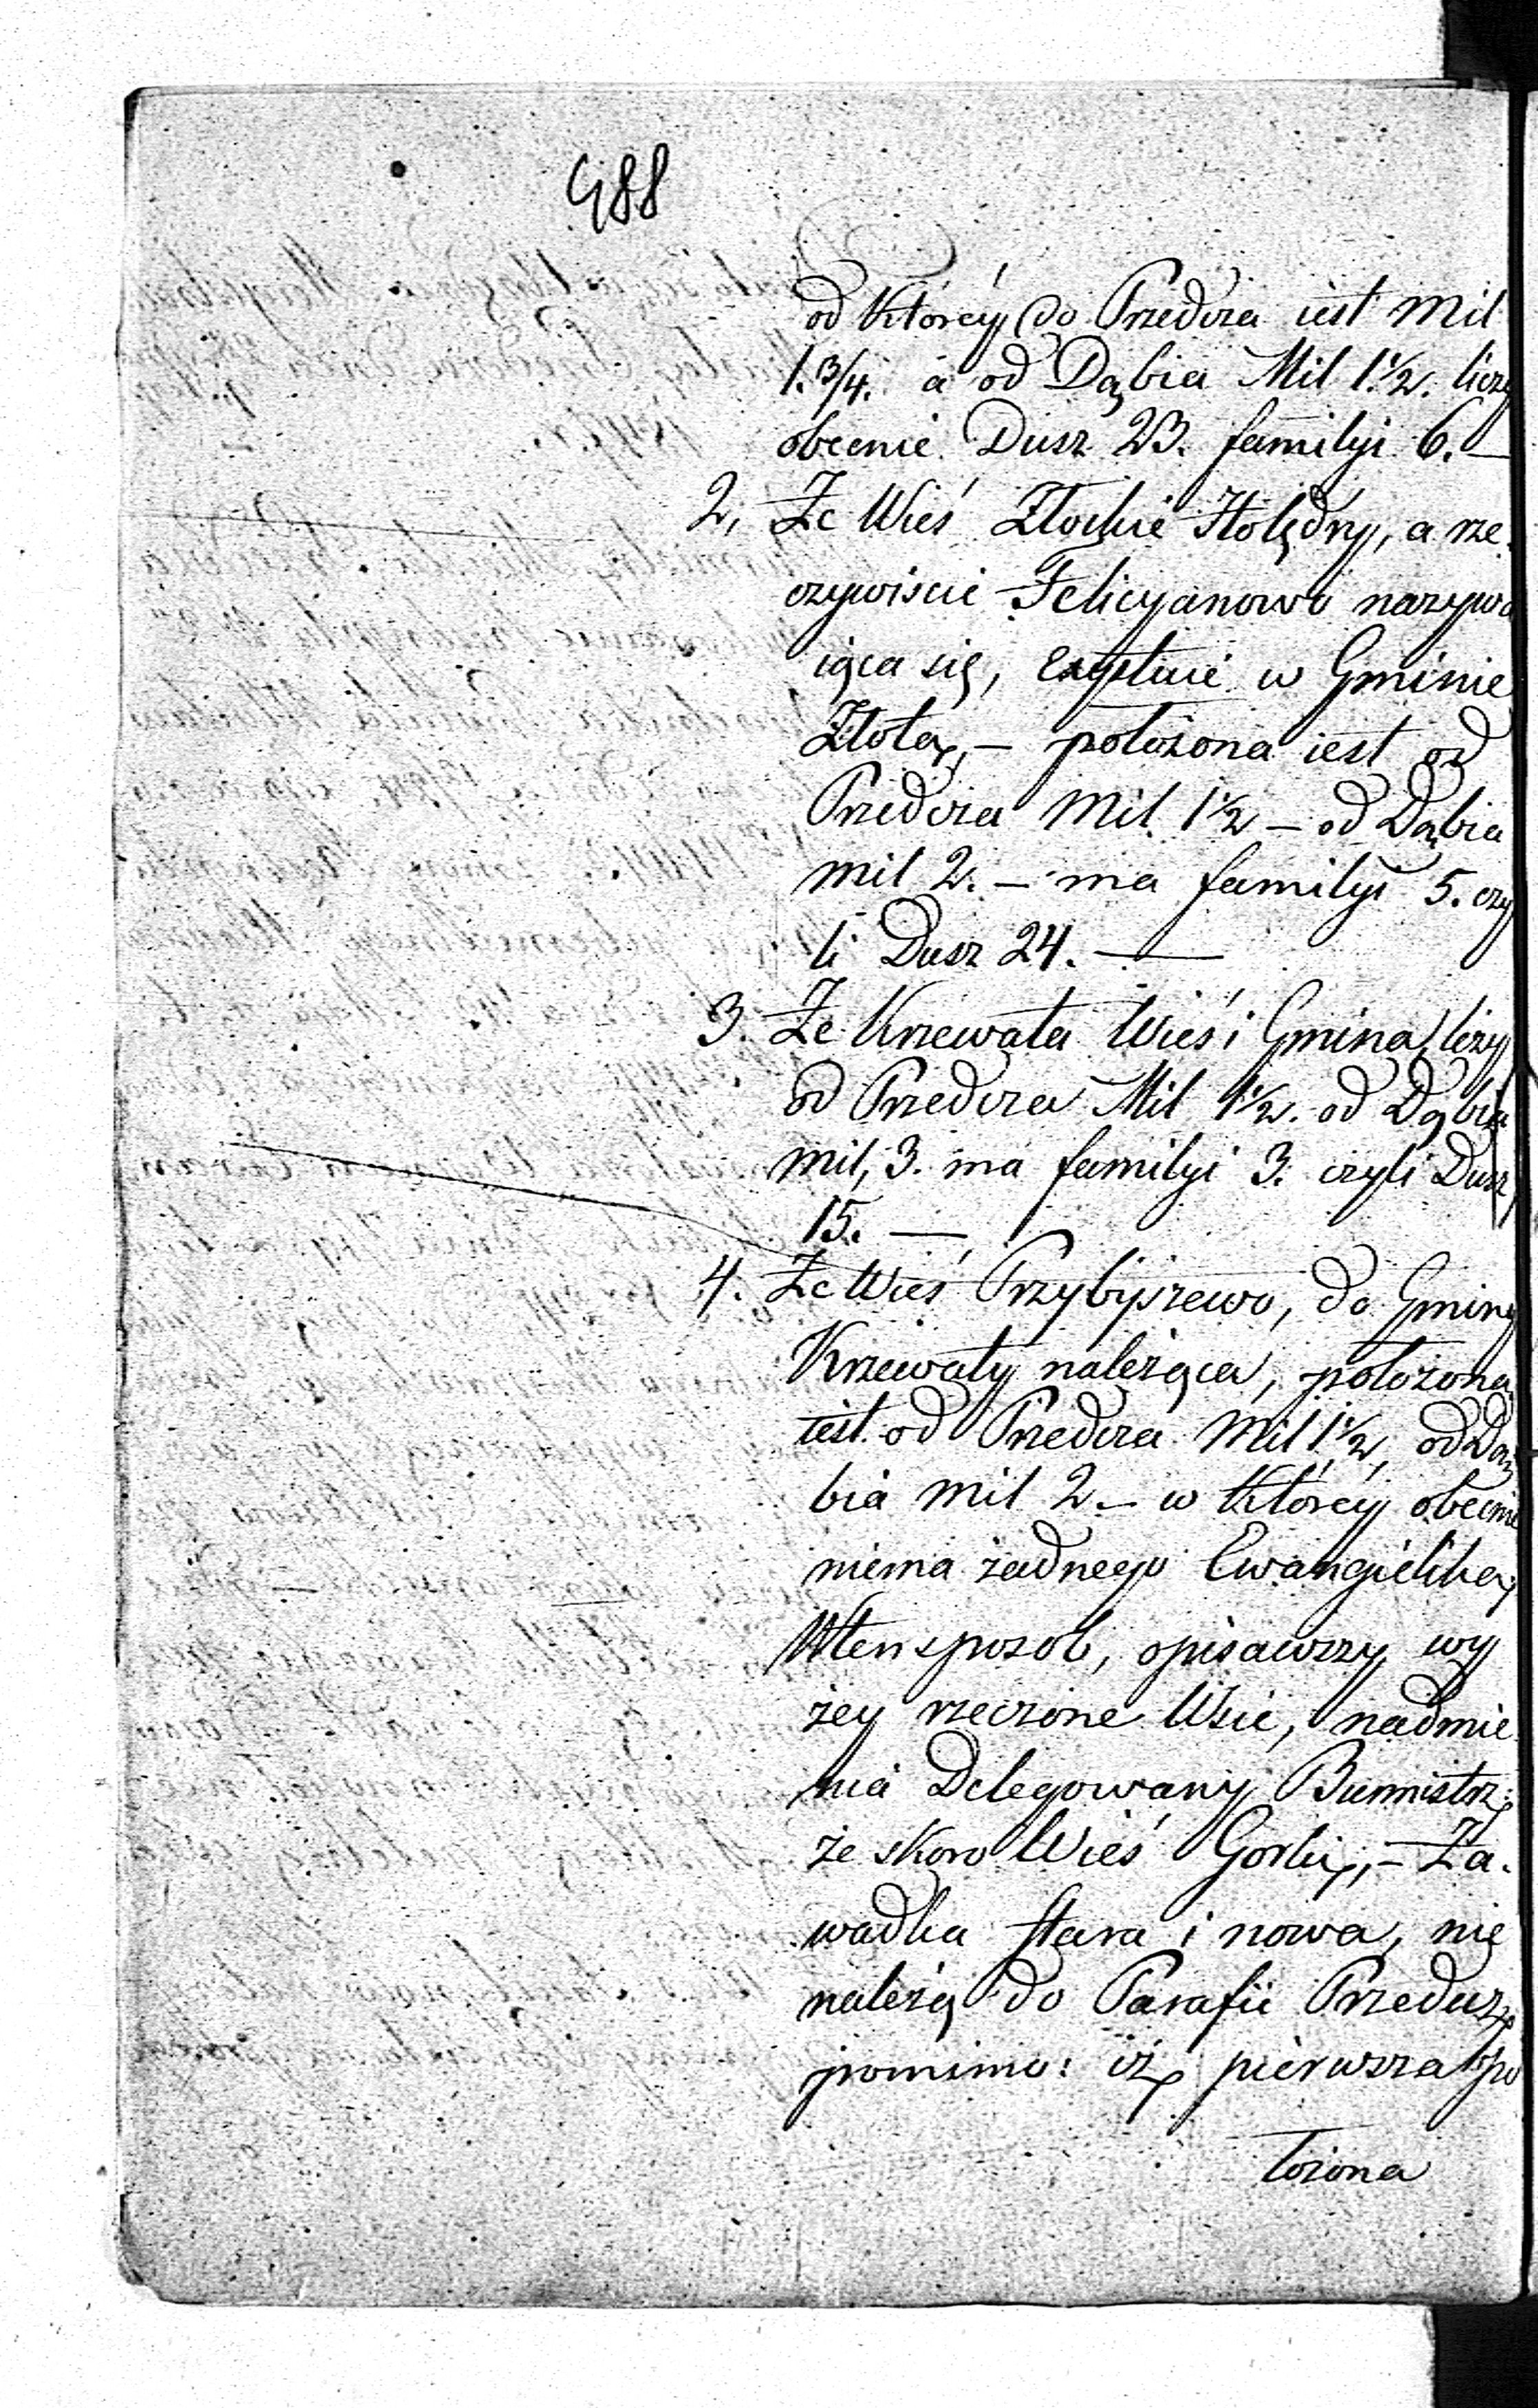 488
od którey do Przedcza iest Mil
1.¾. a od Dąbia Mil 1.½. liczy
obecnie Dusz 23. familyi 6. —
2, Że Wieś Złockie Holędry, a rze-
czywiscie Felicyanowo nazywa
iąca się, exystuie w Gminie
Złota, — położona iest od
Przedcza Mil 1½ — od Dąbia
mil 2. — ma familyi 5. czy
li Dusz 24. —
3. Że Krzewata Wieś i Gmina, leży
od Przedcza Mil 1½. od Dąbia
mil, 3. ma familyi 3. czyli Dusz
15. —
4. Że Wieś Przybyszewo, do Gminy
Krzewaty należąca, położona
iest od Przedcza Mil 1½, od Dą
bia mil 2. — w którey obecnie
niema żadnego Ewangielika,
W ten sposob, opisawszy wy
żey rzeczone Wsie, nadmie
nia Delegowany Burmistrz,
że skoro Wieś Gorki, — Za-
wadka stara i nowa, nie
należą do Parafii Przedecz,
pomimo: iż pierwsza po
łożona